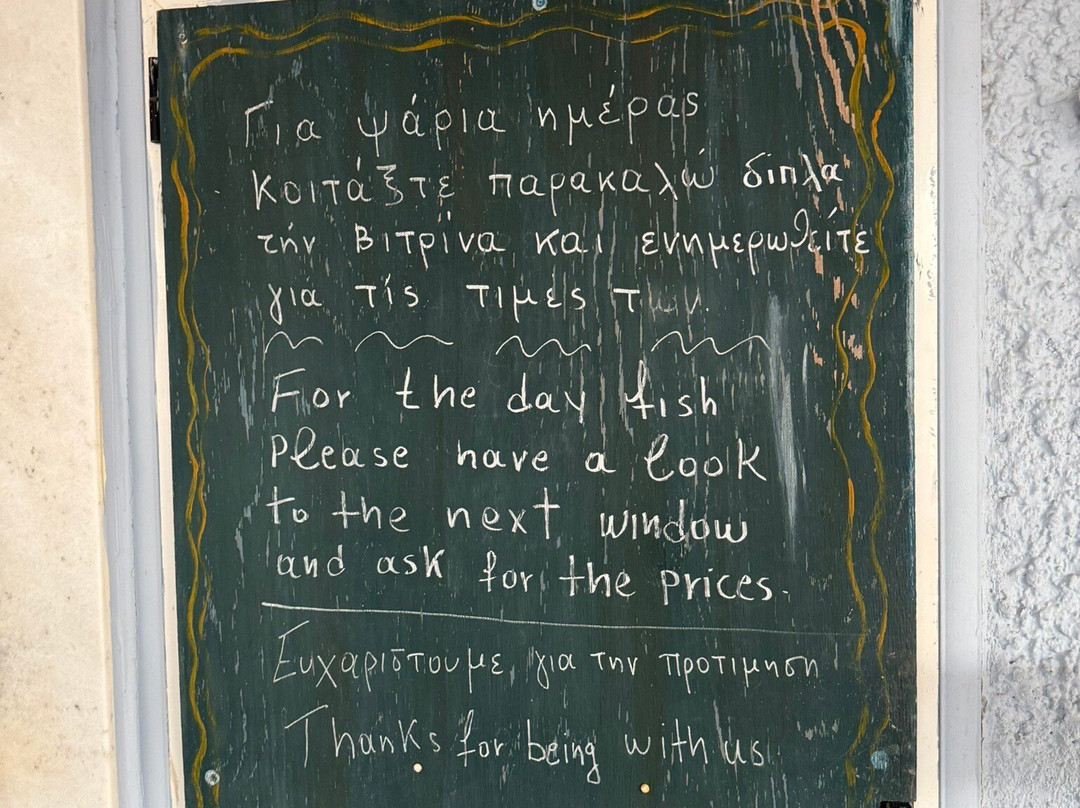 Για ψάρια ημέρας
κοιτάξτε παρακαλώ δίπλα
τήν βιτρίνα και ενημερωθείτε
για τίς τιμές των.
For the day fish
Please have a look
to the next window
and ask for the prices.
Ευχαριστουμε για την προτιμηση
Thanks for being with us